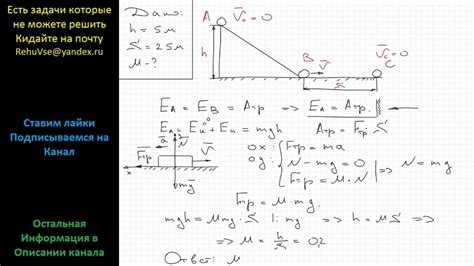 Есть задачи которые
не можете решить
Кидайте на почту
RehuVse@yandex.ru
Ставим лайки
Подписываемся на
Канал
Остальная
Информация в
Описании канала
Дано:
h = 5м
S = 25м
μ - ?
A V₀ = 0
h
B V C
Vc = 0
S
E_A = E_B = Aтр => E_A = Aтр.
E_A = Eк + Eп = mgh Aтр = Fтр · S
a N V
Fтр
x mg
ox: Fтр = ma
oy: N - mg = 0 => N = mg
Fтр = μ · N
Fтр = μ · mg.
mgh = μmg · S |: mg => h = μS =>
=> μ = h/S = 0,2
Ответ: μ